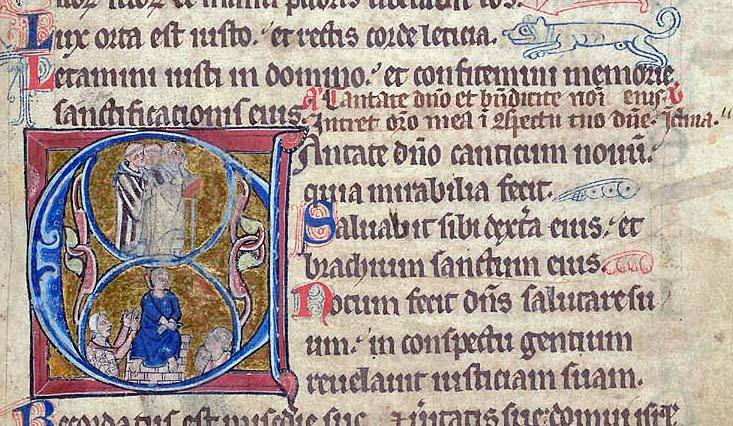 Lux orta est iusto. et rectis corde leticia.
Letamini iusti in domino. et confitemini memorie
sanctificationis eius.
Cantate dño et bñdicite noī eius.
Intret oro mea ī 9spectu tuo dñe.
Antate dño canticum nouū.
quia mirabilia fecit.
Saluabit sibi dextã eius. et
brachium sanctum eius.
Notum fecit dñs salutare su
um. in conspectu gentium
reuelauit iusticiam suam.
Recordatus est misc̄die sue